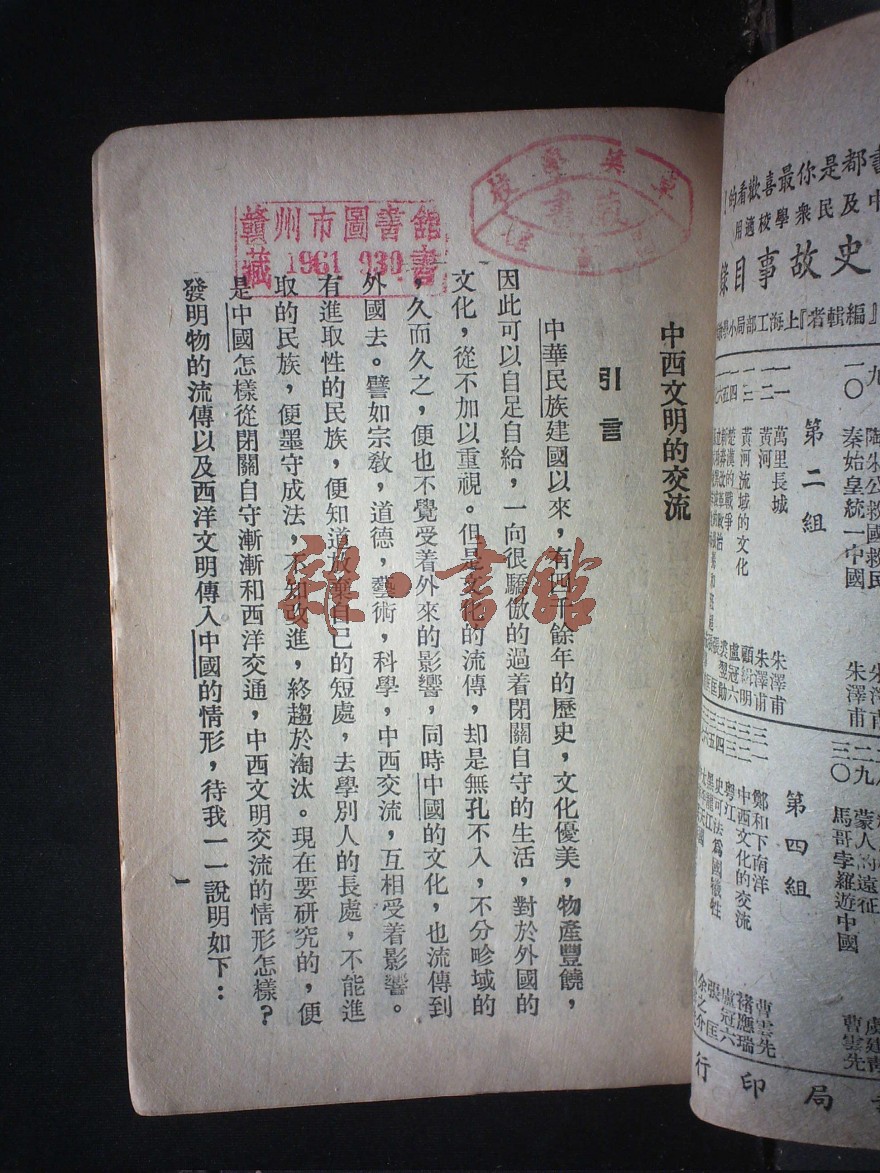 中西文明的交流
引言
中華民族建國以來，有四千餘年的歷史，文化優美，物產豐饒，
因此可以自足自給，一向很驕傲的過着閉關自守的生活，對於外國的
文化，從不加以重視。但是文化的流傳，却是無孔不入，不分畛域的
，久而久之，便也不覺受着外來的影響，同時中國的文化，也流傳到
外國去。譬如宗教，道德，藝術，科學，中西交流，互相受着影響。
有進取性的民族，便知道放棄自己的短處，去學別人的長處，不能進
取的民族，便墨守成法，不知改進，終趨於淘汰。現在要研究的，便
是中國怎樣從閉關自守漸漸和西洋交通，中西文明交流的情形怎樣？
發明物的流傳以及西洋文明傳入中國的情形，待我一一說明如下：
一
贛州市圖書館
藏 1961 930 書
藏書
雜·書館
書都是你最喜歡看的
中及民衆學校適用
史故事目錄
『編輯者』上海工部局小學
陶朱公救國救民 朱澤甫
一〇 秦始皇統一中國 朱澤甫
第二組
一一 萬里長城 朱澤甫
一二 黃河 朱澤甫
一三 黃河流域的文化 顧緝明
一四 楚漢的戰爭 盧冠六
蒙人的遠征
三〇 馬哥孛羅遊中國 曹雲先
第四組
三一 鄭和下南洋 曹雲先
三二 中西文化的交流 褚應瑞
三三 粵江 盧冠六
三四 史可法爲國犧牲 張匡
三五 黑龍江
書局印行